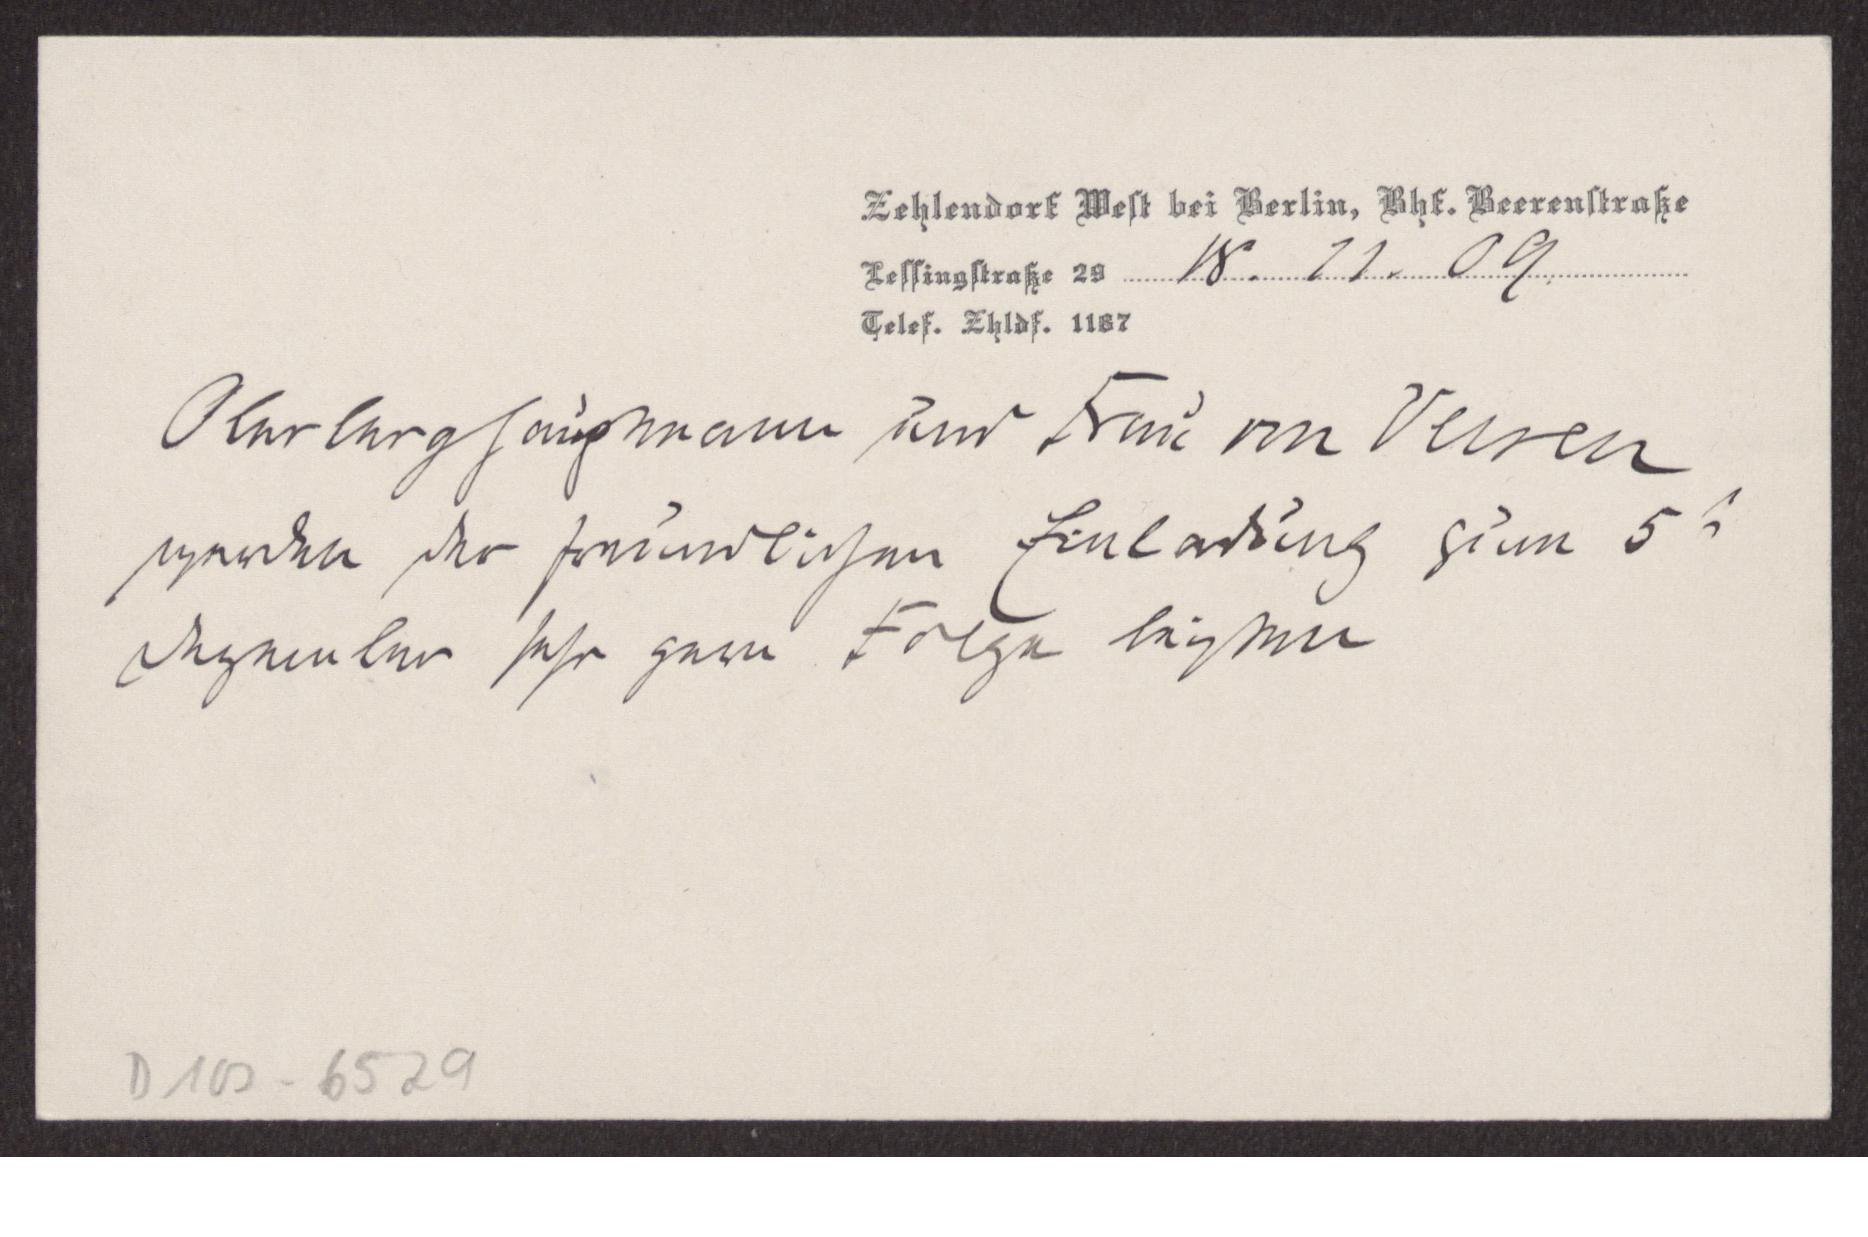 Zehlendorf West bei Berlin, Bhf. Beerenstraße
Lessingstraße 29 18. 11. 09.
Telef. Zhldf. 1187
Oberberghauptmann und Frau von Velsen
werden der freundlichen Einladung zum 5t
Dezember sehr gern Folge leisten
D 100 - 6529